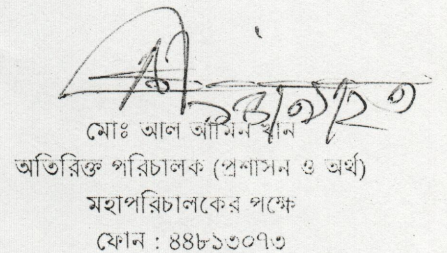 মোঃ আল আমিন খান
অতিরিক্ত পরিচালক (প্রশাসন ও অর্থ)
মহাপরিচালকের পক্ষে
ফোন : ৪৪৮১৩০৭৩